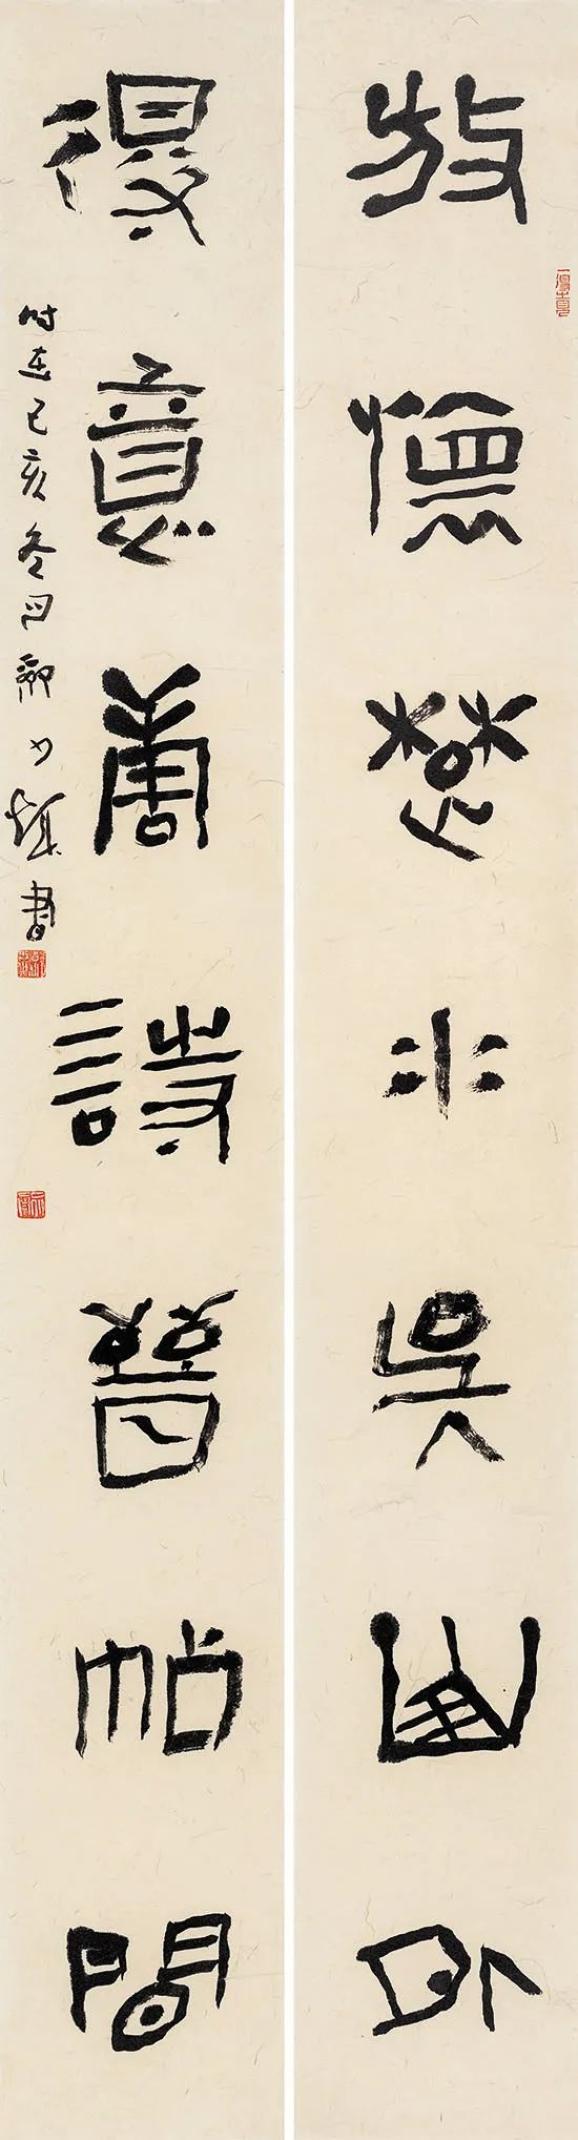 放懷楚水吳山外
得意唐詩晉帖間
時在己亥冬月
書